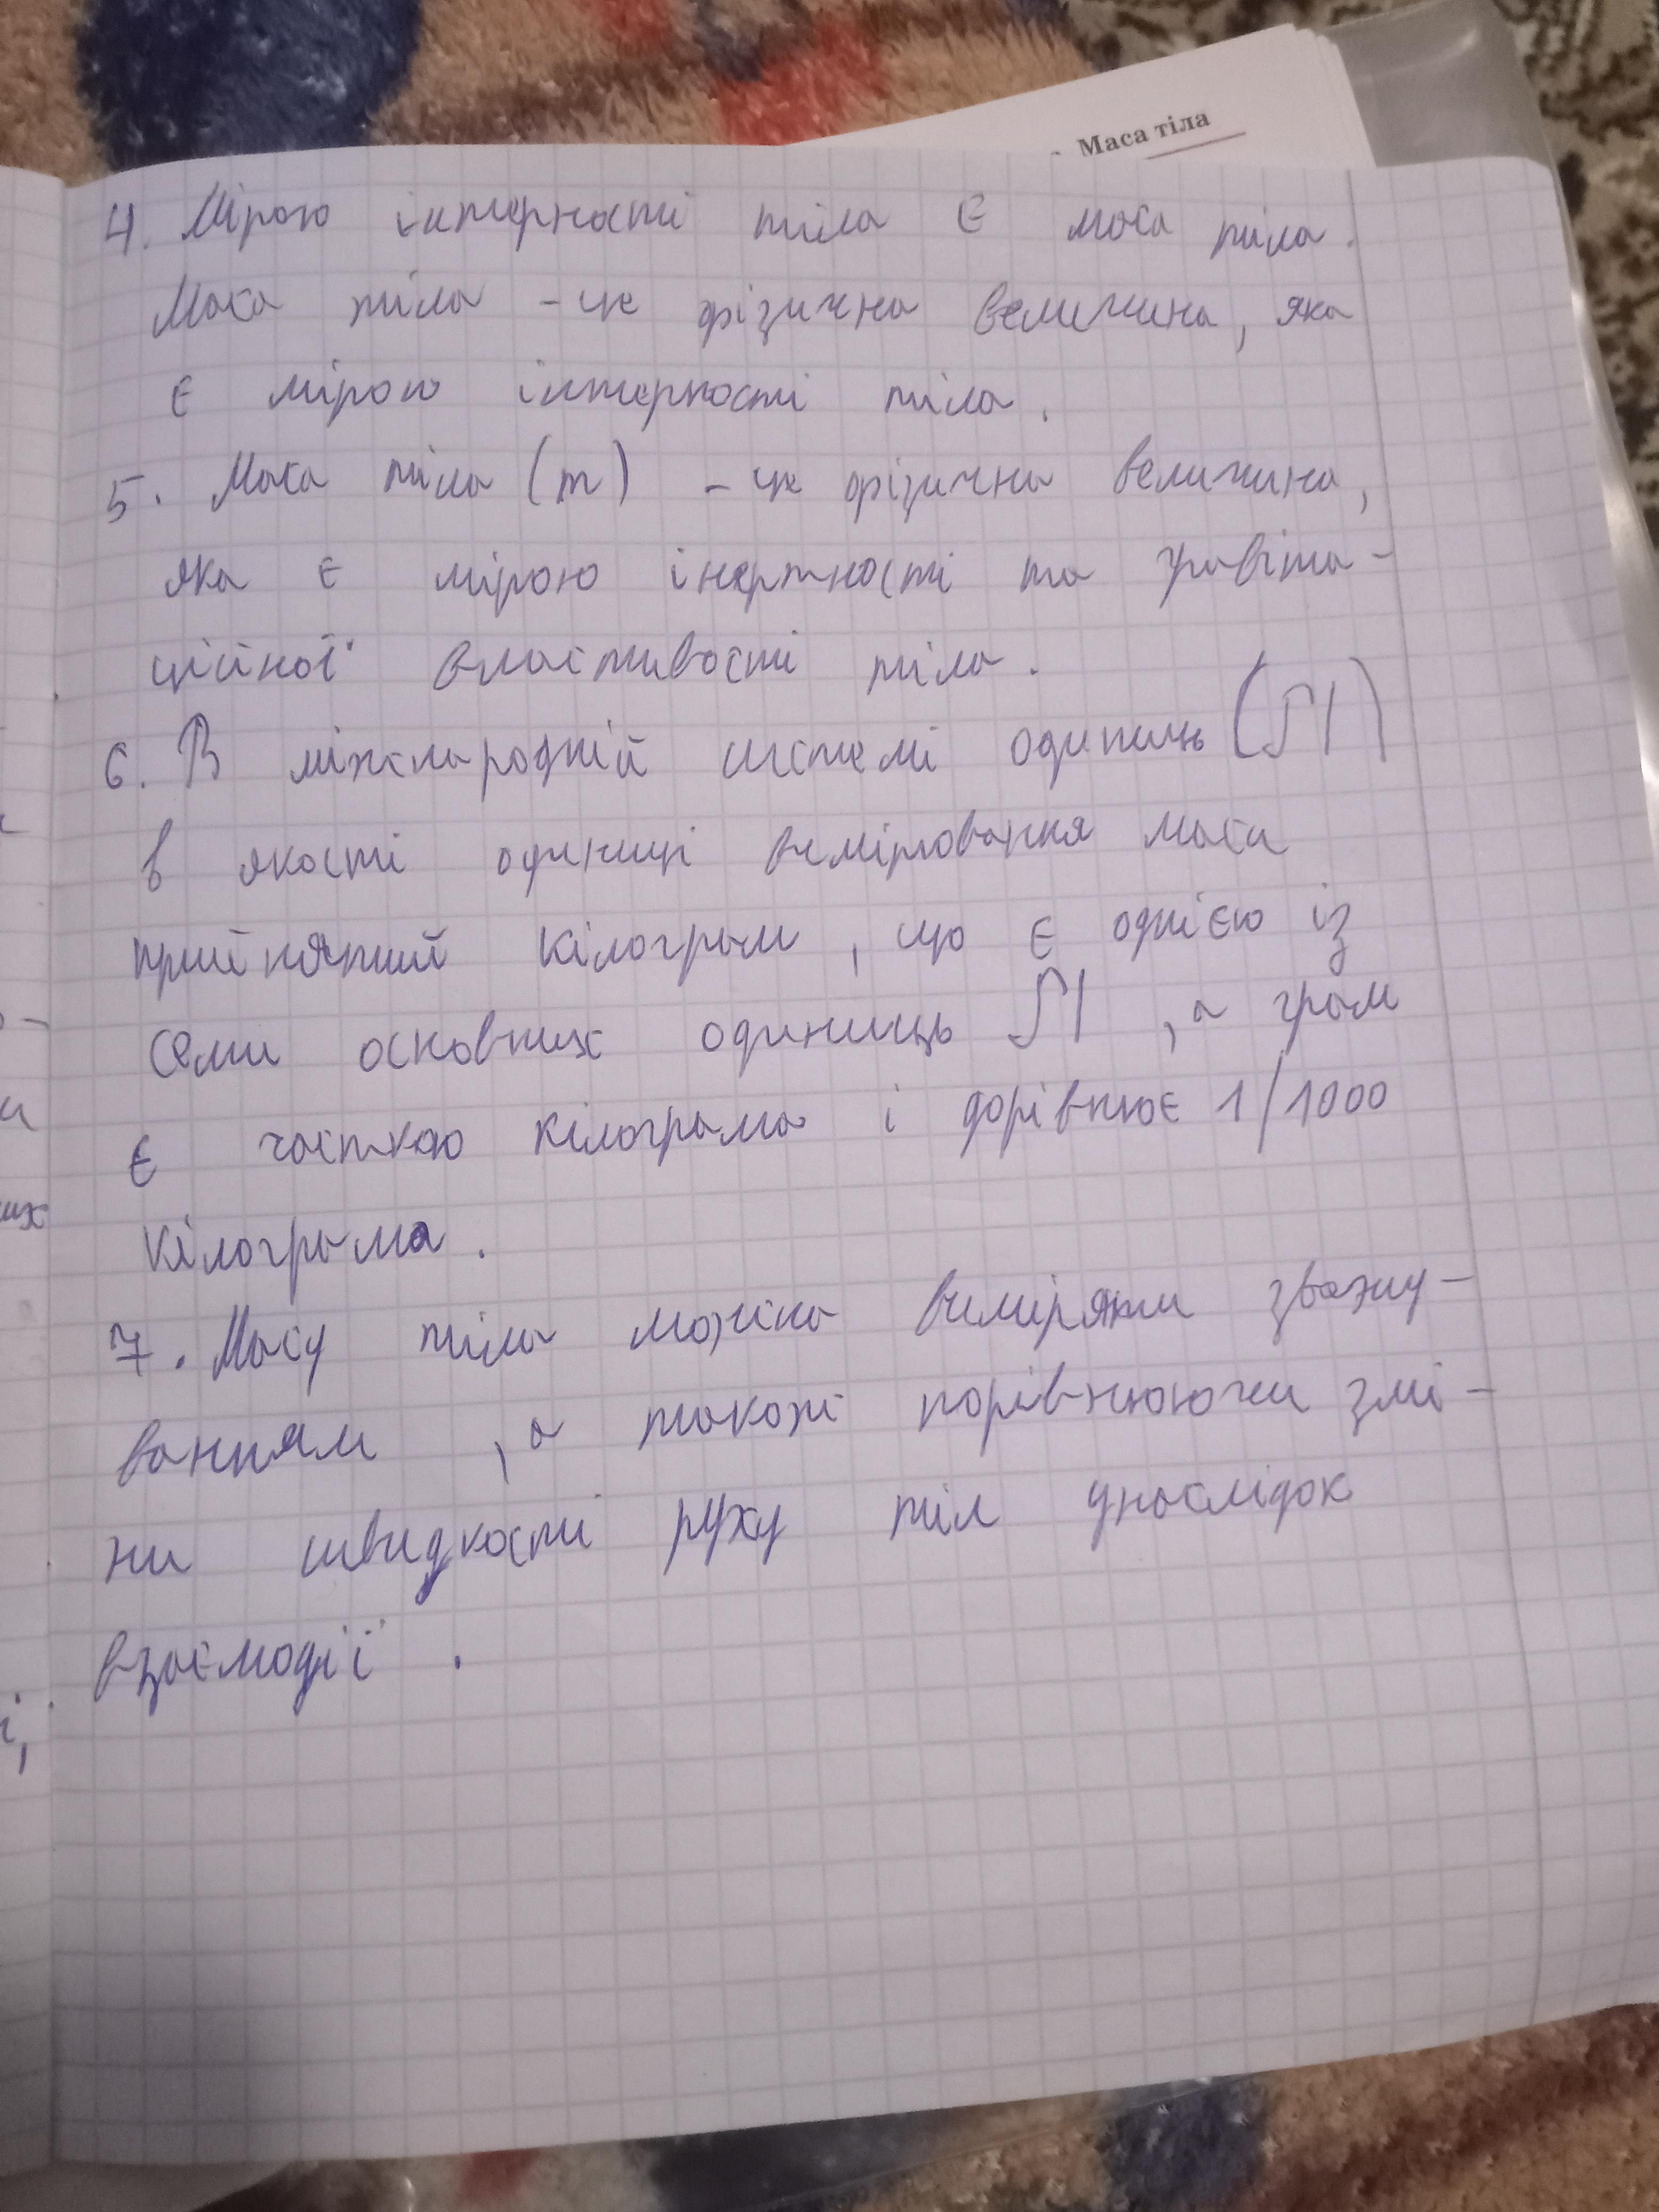 Маса тіла
4. Мірою інтерності тіла є маса тіла.
Маса тіла - це фізична величина, яка
є мірою інтерності тіла.
5. Маса тіла (m) - це фізична величина,
яка є мірою інертності та гравіта-
ційної властивості тіла.
6. В міжнародній системі одиниць (SI)
в якості одиниці вимірювання маси
прийнятий кілограм, що є однією із
семи основних одиниць SI, а грам
є часткою кілограма і дорівнює 1/1000
кілограма.
7. Масу тіла можна виміряти зважу-
ванням, а також порівнюючи змі-
ни швидкості руху тіл унаслідок
взаємодії.
их
і,